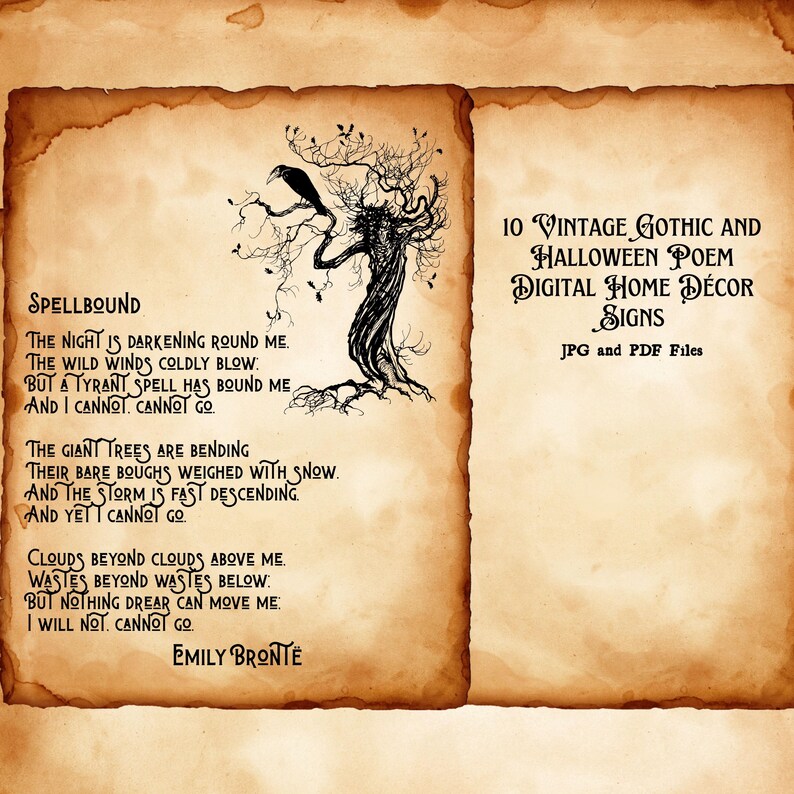 Spellbound
The night is darkening round me.
The wild winds coldly blow:
But a tyrant spell has bound me
And I cannot. cannot go.
The giant trees are bending
Their bare boughs weighed with snow.
And the storm is fast descending.
And yet I cannot go.
Clouds beyond clouds above me.
Wastes beyond wastes below:
But nothing drear can move me:
I will not. cannot go.
Emily Brontë
10 Vintage Gothic and
Halloween Poem
Digital Home Décor
Signs
JPG and PDF Files